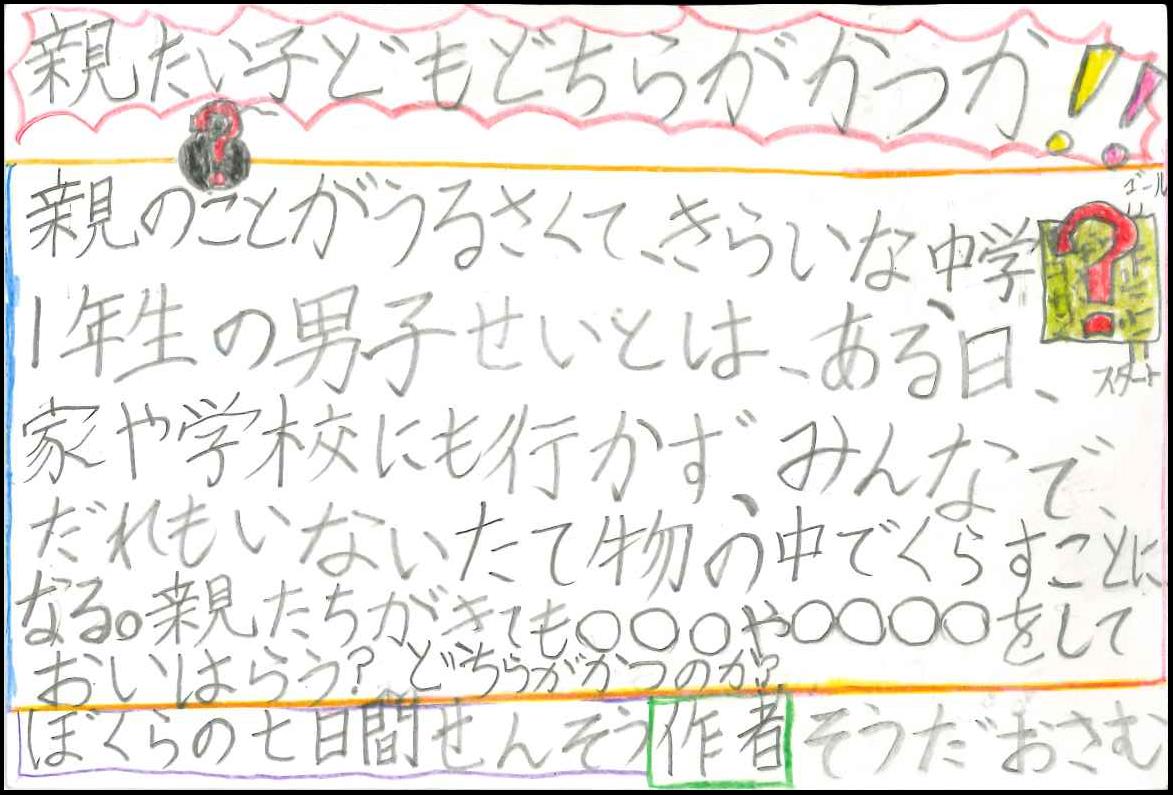 親たい子どもどちらがかつか!!
?
親のことがうるさくて、きらいな中学
1年生の男子せいとは、ある日、
家や学校にも行かず、みんなで、
だれもいないたて物の中でくらすことに
なる。親たちがきても○○○や○○○○をして
おいはらう?どちらがかつのか?
ゴール
?
スタート
ぼくらの七日間せんそう 作者 そうだおさむ